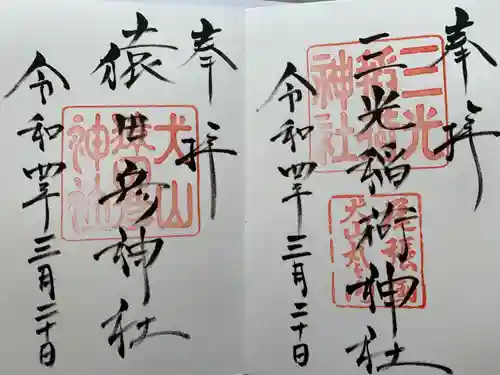 奉拝
三光稲荷神社
令和四年三月二十日
三光
稲荷
神社
尾張國
犬山
奉拝
猿田彦神社
令和四年三月二十日
犬山
猿田彦
神社